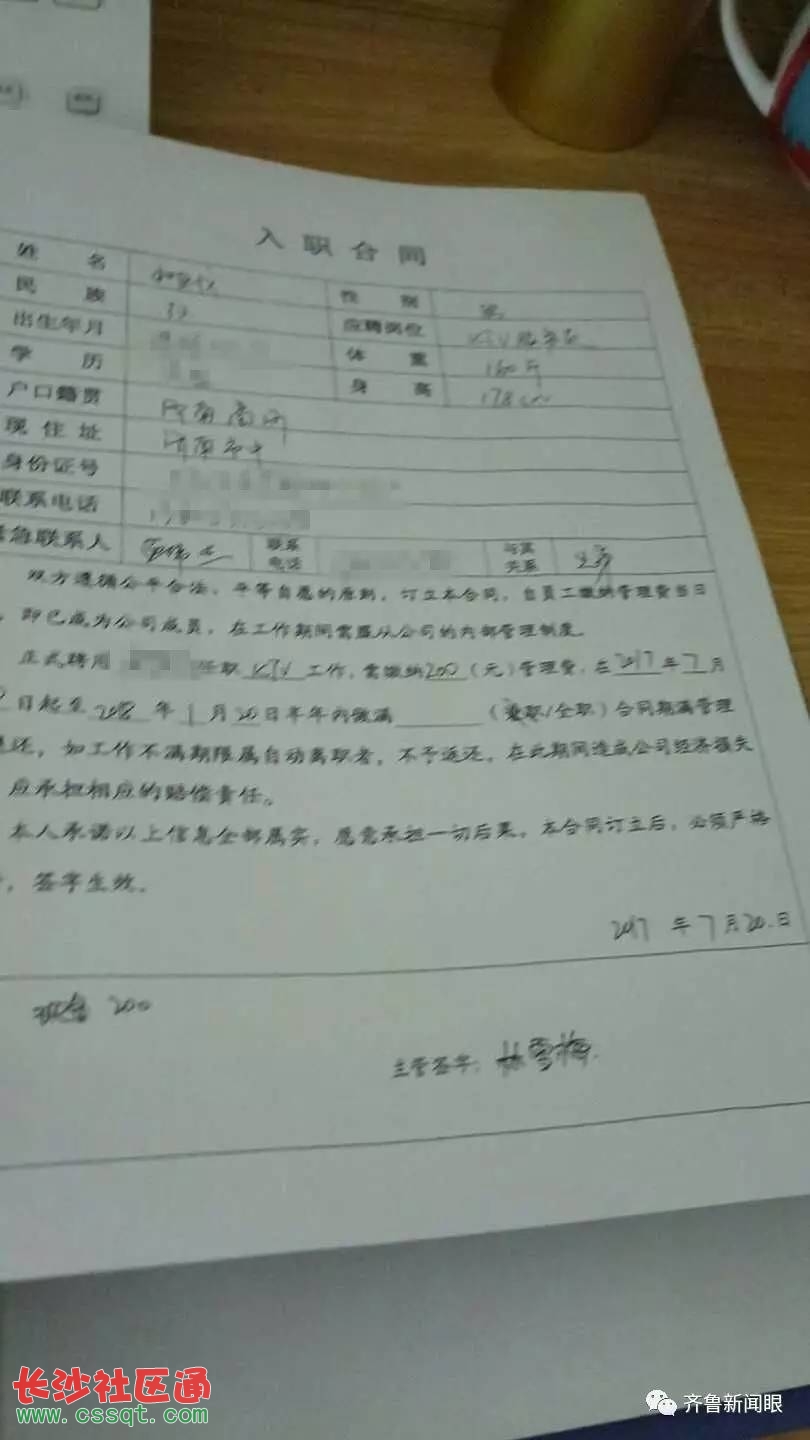 入职合同
姓名 性别 男
民族 汉 应聘岗位 KTV服务员
出生年月 体重 160斤
学历 身高 178cm
户口籍贯
现住址 济南市中
身份证号
联系电话
急联系人 联系电话 与其关系
双方遵循公平合法、平等自愿的原则，订立本合同，自员工缴纳管理费当日
，即已成为公司成员，在工作期间需服从公司的内部管理制度。
正式聘用 任职 KTV 工作，需缴纳200（元）管理费，在2017年7月
日起至2018年1月20日半年内做满（兼职/全职）合同期满管理
退还，如工作不满期限属自动离职者，不予返还，在此期间造成公司经济损失
应承担相应的赔偿责任。
本人承诺以上信息全部属实，愿意承担一切后果。本合同订立后，必须严格
，签字生效。
2017年7月20.日
现金 200
主管签字：林雪梅
长沙社区通
www.cssqt.com
齐鲁新闻眼